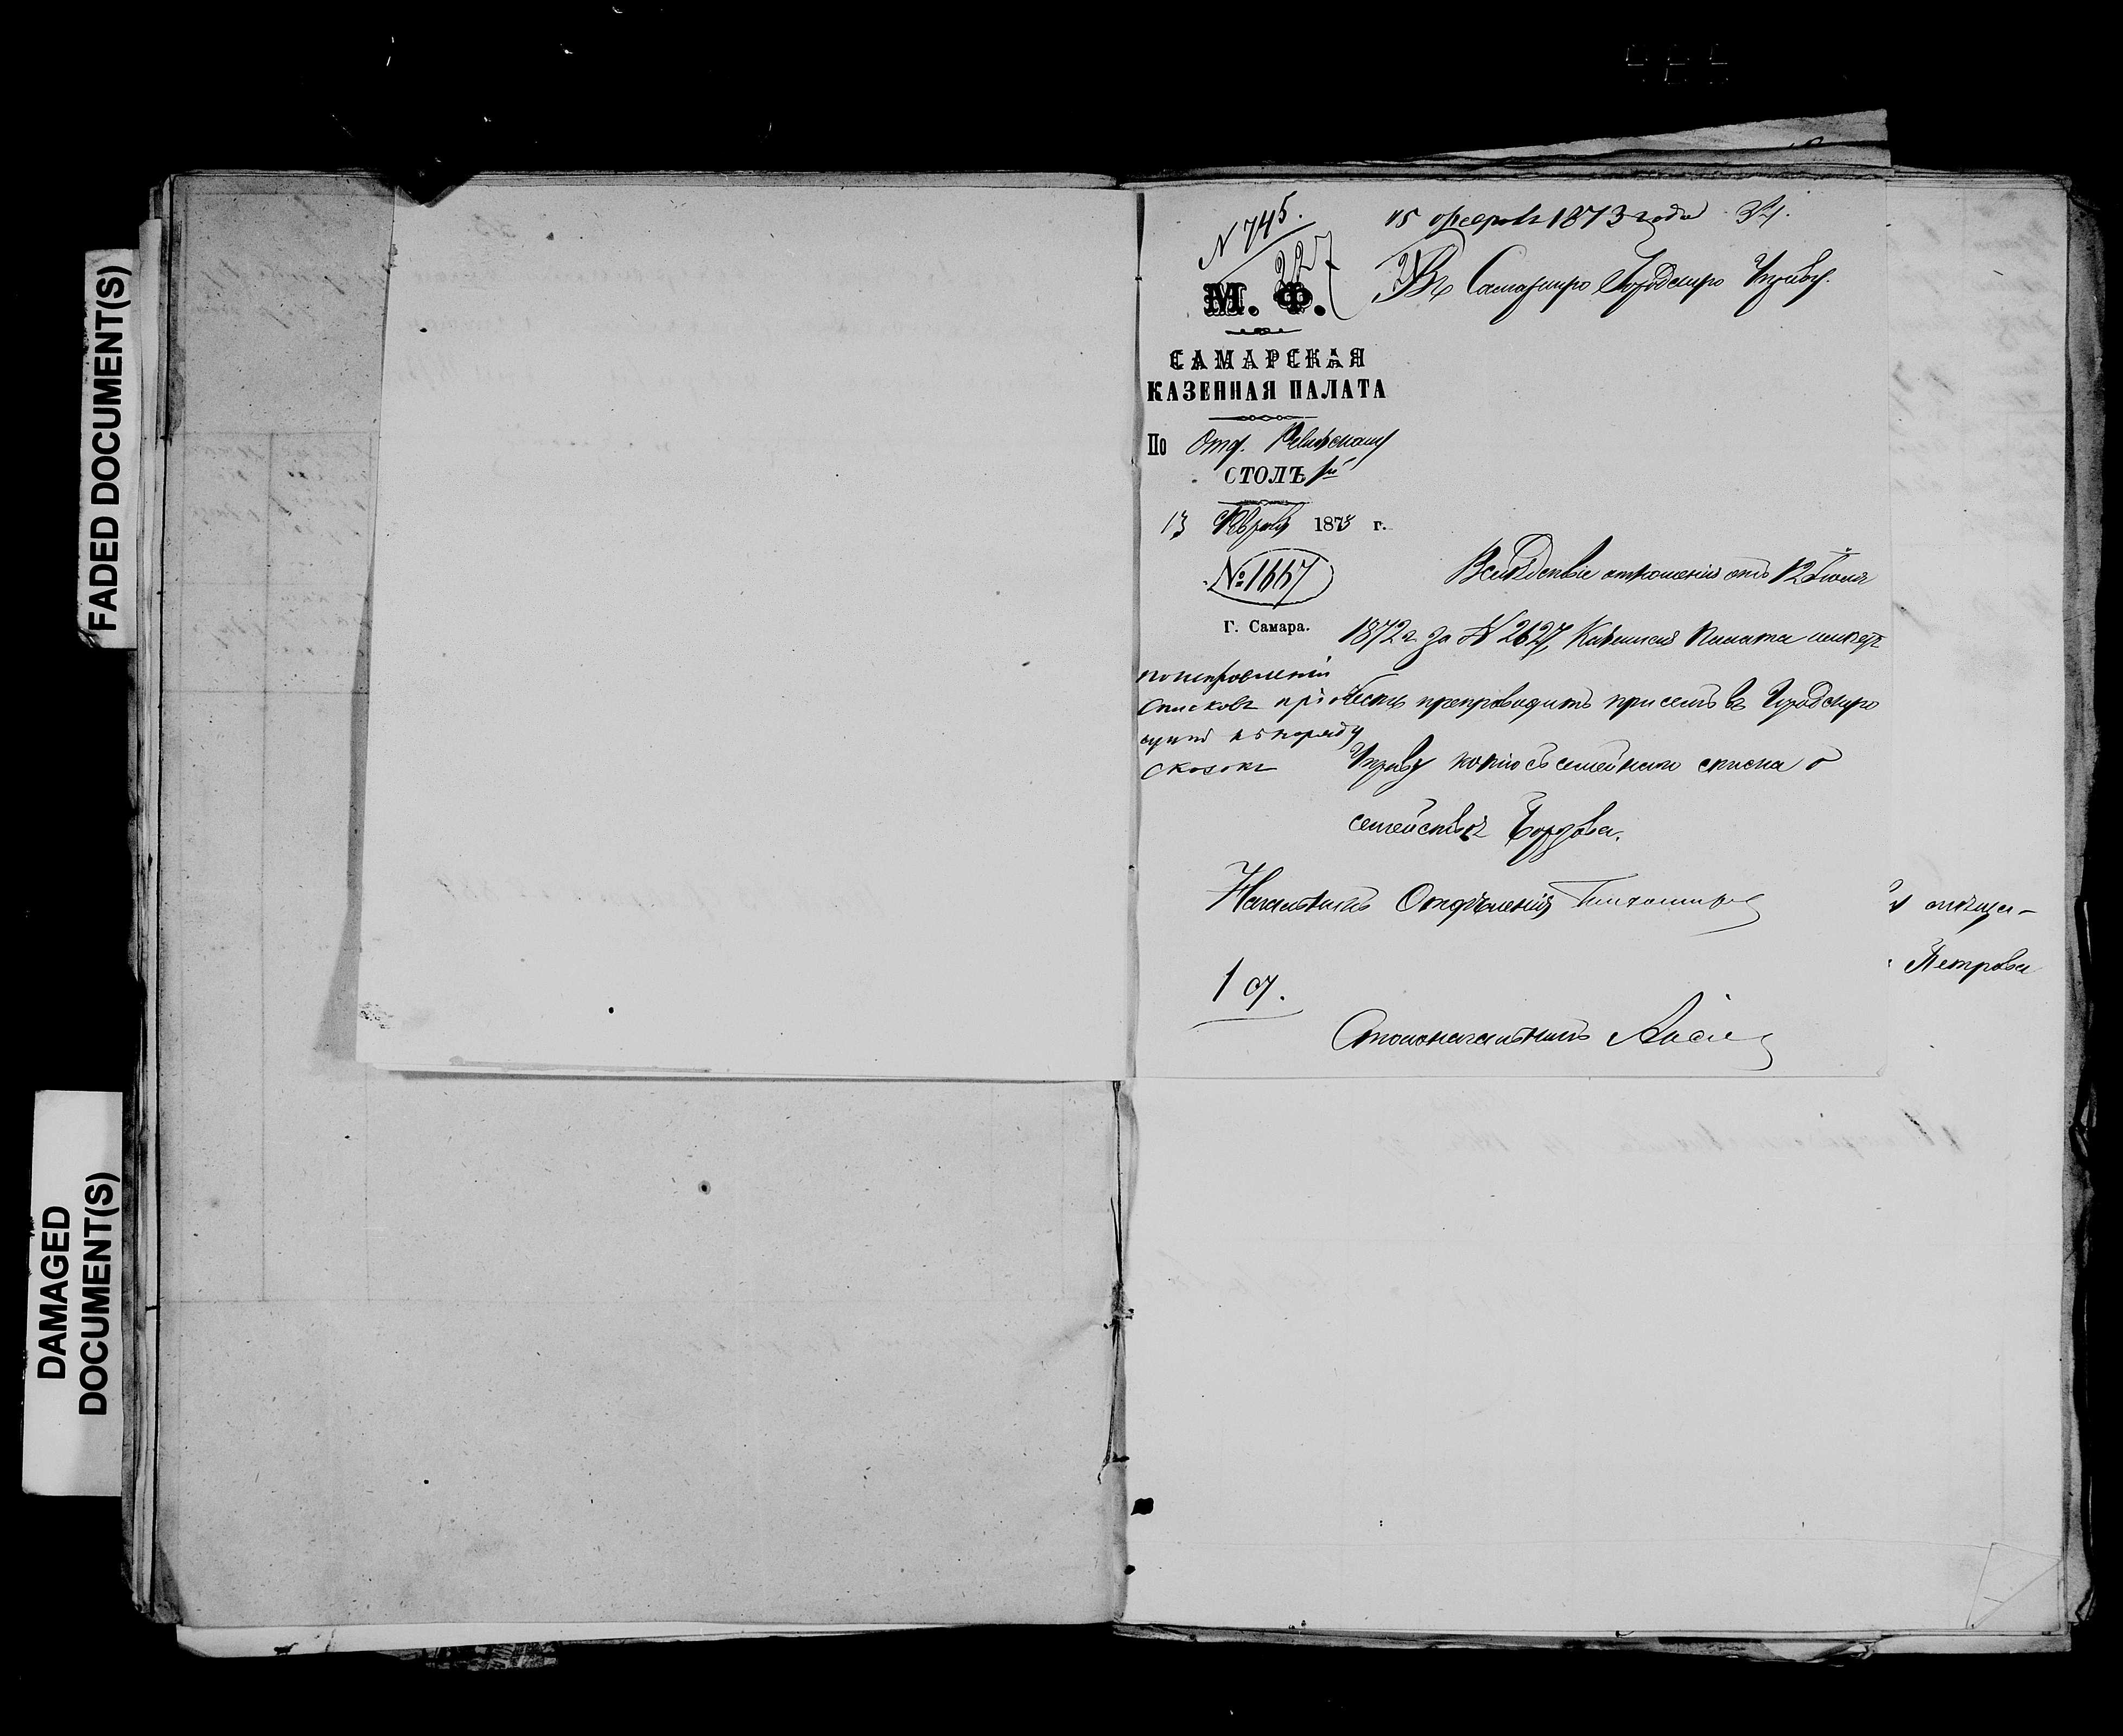 FADED DOCUMENT(S)
DAMAGED
DOCUMENT(S)
N 745.
15 февраля 1873 года 34.
227
М. Ф.
Въ Самарскую Городскую Управу.
САМАРСКАЯ
КАЗЕННАЯ ПАЛАТА
По Отд. Ревизскому
СТОЛЪ 1й
13 Февраля 1873 г.
№ 1667
Г. Самара.
Вслѣдствіе отношенія отъ 12 Іюля
1872 г. за N 2627, Казенная Палата имѣетъ
честь препроводить при семъ въ Городскую
Управу копію съ семейнаго списка о
семействѣ
по исправленіи
списковъ
къ порядку
сказокъ
Начальникъ Отдѣленія Тихомиров
1 ст.
Столоначальникъ
Петрова